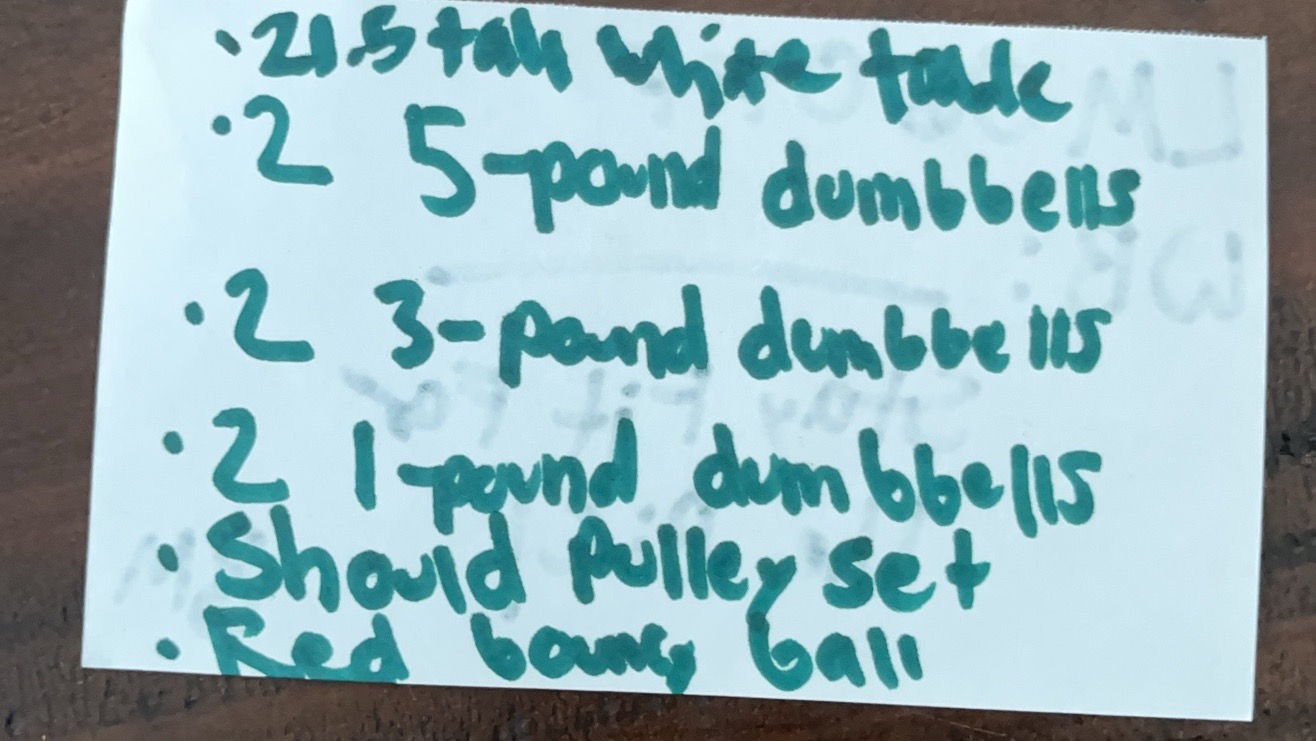 • 21.5 tall white table
• 2 5-pound dumbbells
• 2 3-pound dumbbells
• 2 1-pound dumbbells
• Should Pulley set
• Red bouncy ball